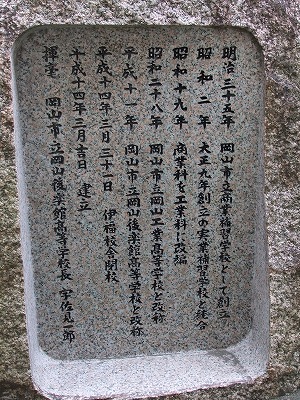 明治三十五年 岡山市立商業補習学校として創立
昭和二年 大正九年創立の実業補習学校と統合
昭和十九年 商業科を工業科に改編
昭和二十八年 岡山市立岡山工業高等学校と改称
平成十一年 岡山市立岡山後楽館高等学校と改称
平成十四年三月三十一日 伊福校舎閉校
平成十四年三月吉日 建立
揮毫 岡山市立岡山後楽館高等学校長 宇佐見一郎